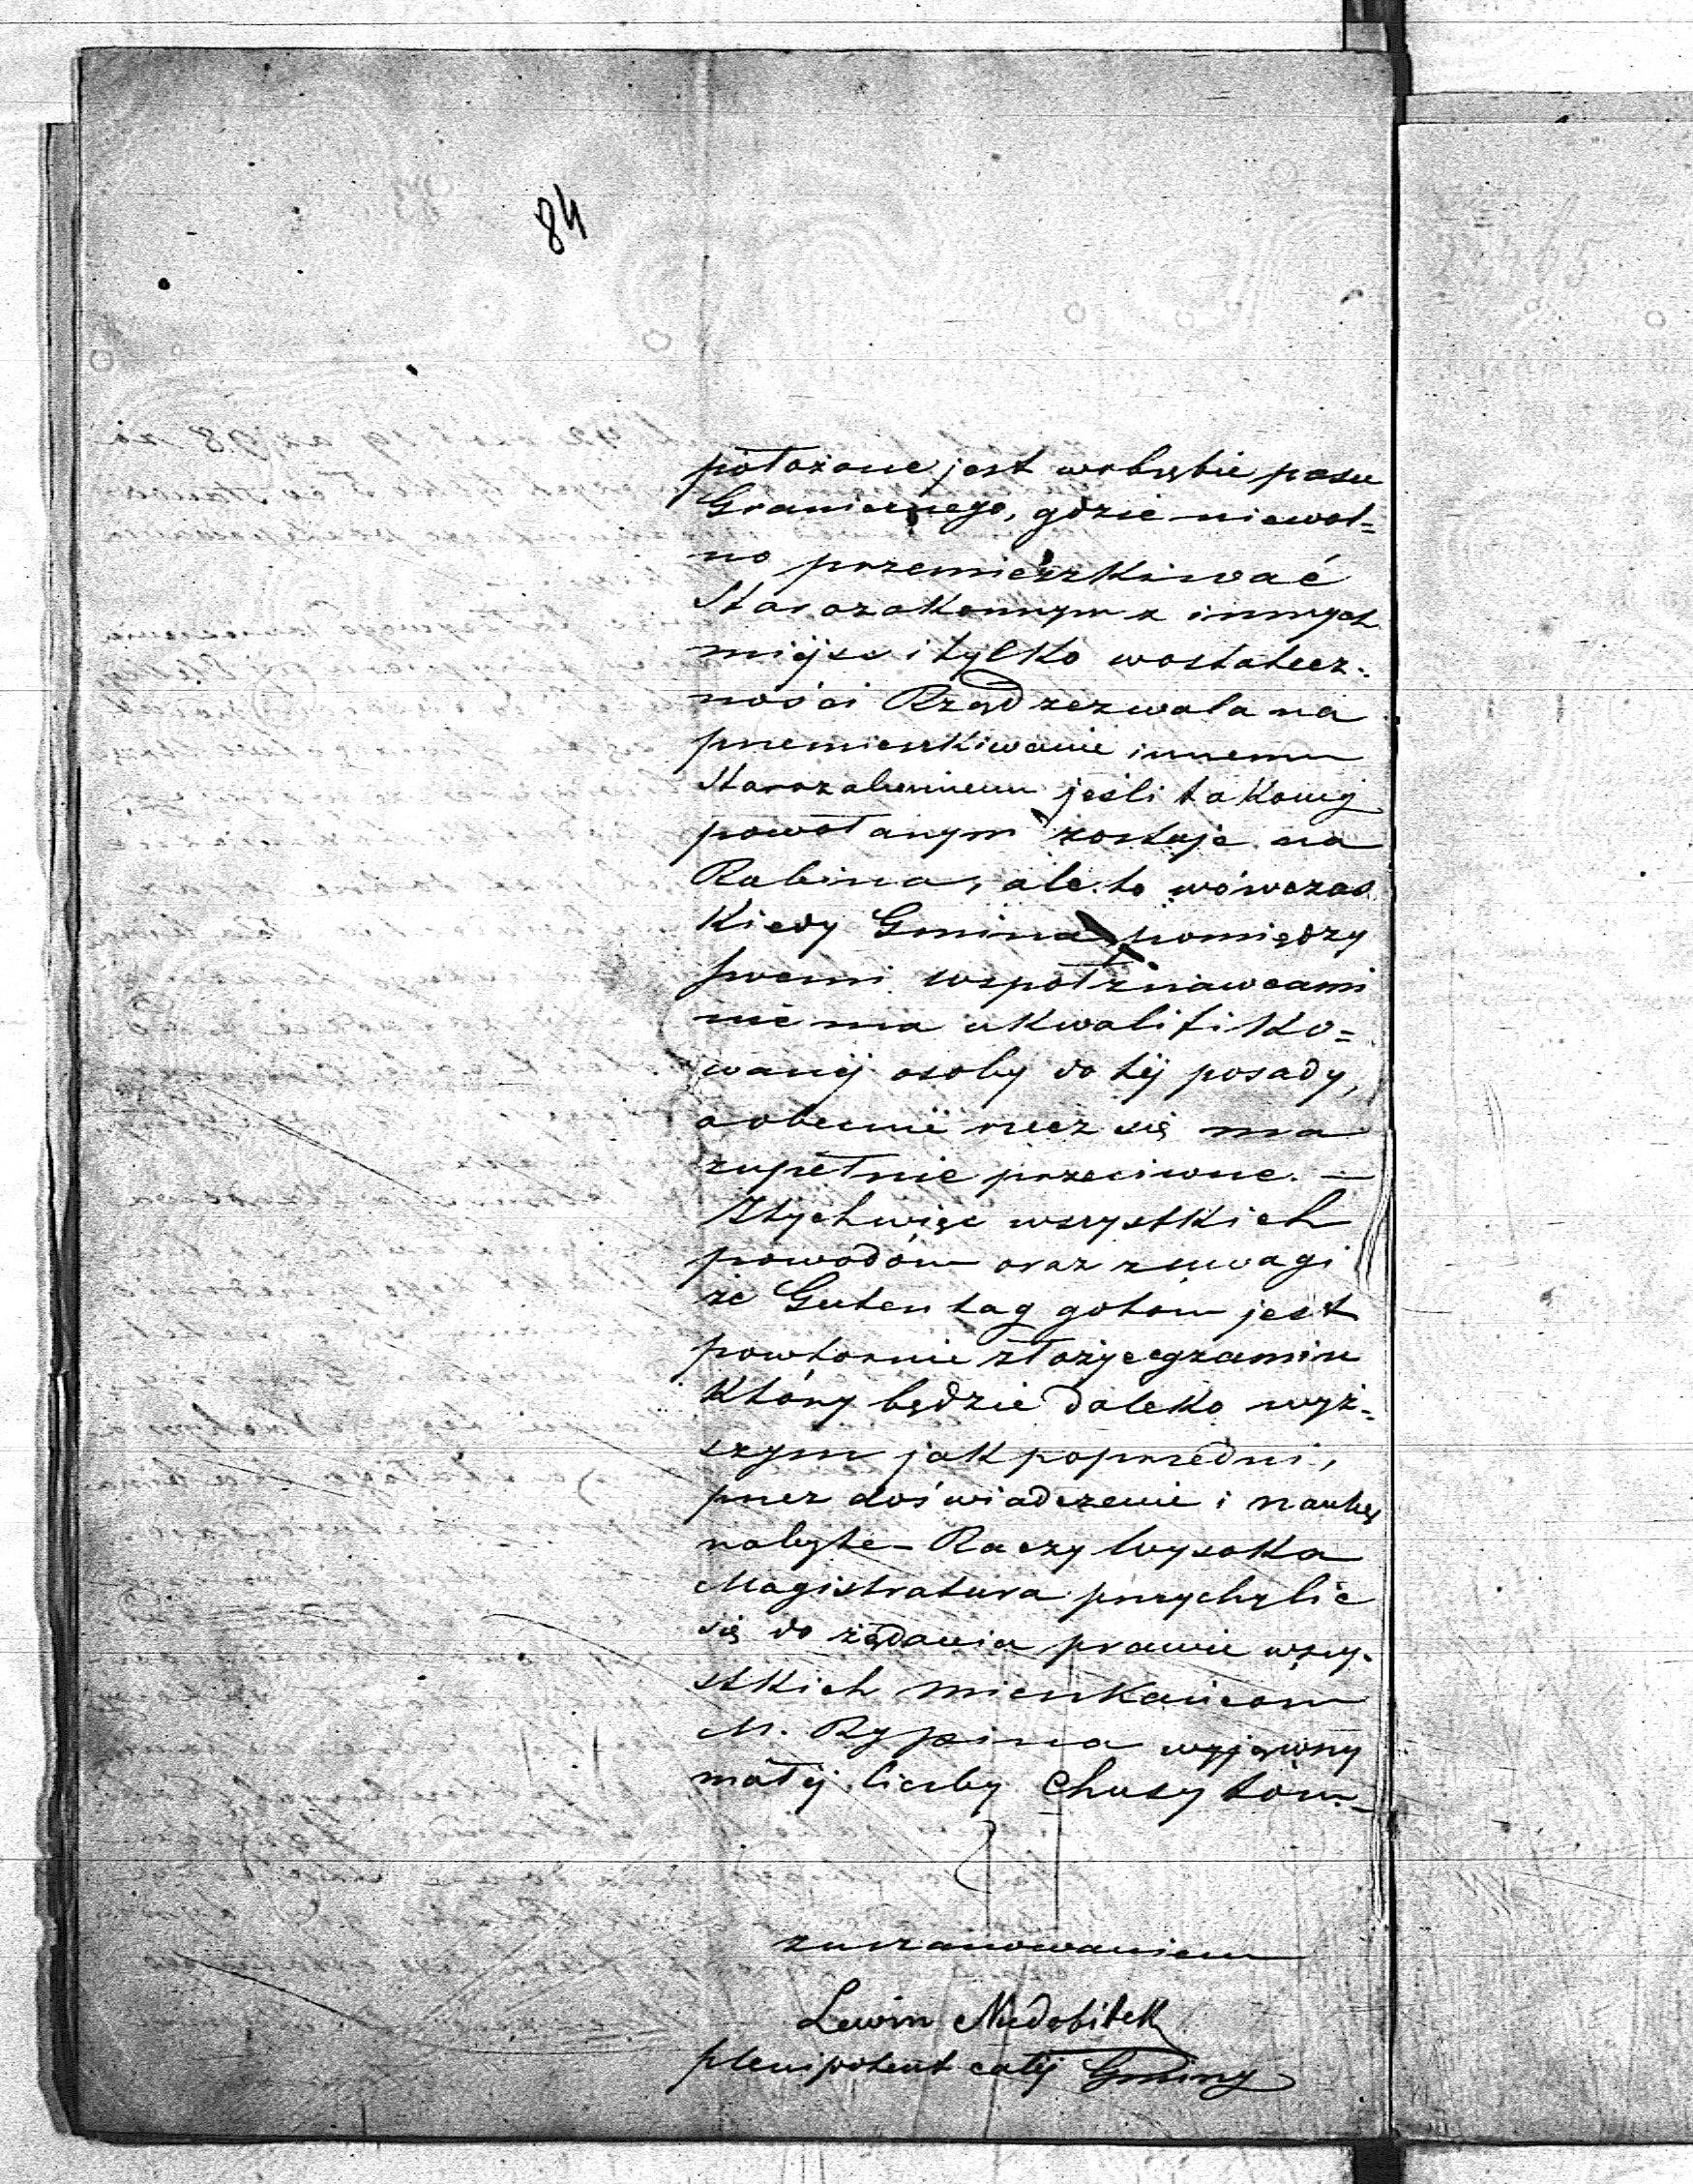 84
położone jest wobrębie pasu
Granicznego, gdzie niewol=
no przemieszkiwać
Starozakonnym z innych
miejsc i tylko wostatecz-
ności Rząd zezwala na
przemieszkiwanie innemu
Starozakonnemu jeśli takowy
powołanym zostaje na
Rabina, ale to wówczas
Kiedy Gmina pomiędzy
swemi współznawcami
niema ukwalifiko=
wanéj osoby do téj posady,
a obecnie rzecz się ma
zupełnie przeciwne. —
Ztych więc wszystkich
powodów oraz z uwagi
że Gutentag gotów jest
powtórnie złożyć egzamin
Który będzie daleko wyż=
szym jak poprzedni,
przez doświadczenie i naukę
nabyte – Raczy Wysoka
Magistratura przychylić
się do żądania prawie wszy-
stkich mieszkańców
M. Rypina wyjąwszy
małéj liczby Chusytów. –
zuszanowaniem
Lewin Niedobitek
plenipotent całéj Gminy